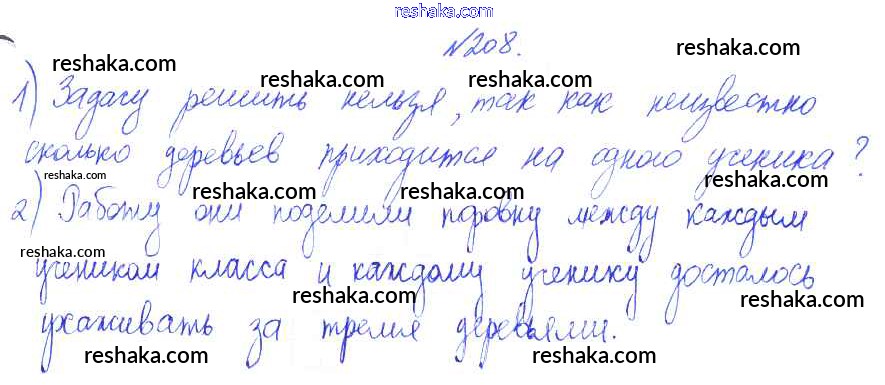 reshaka.com
№208.
reshaka.com
reshaka.com
reshaka.com
reshaka.com
1) Задачу решить нельзя, так как неизвестно
reshaka.com
reshaka.com
сколько деревьев приходится на одного ученика?
reshaka.com
reshaka.com
reshaka.com
reshaka.com
2) Работу они поделили поровну между каждым
reshaka.com
reshaka.com
reshaka.com
учеником класса и каждому ученику досталось
reshaka.com
reshaka.com
ухаживать за тремя деревьями.
reshaka.com
reshaka.com
reshaka.com